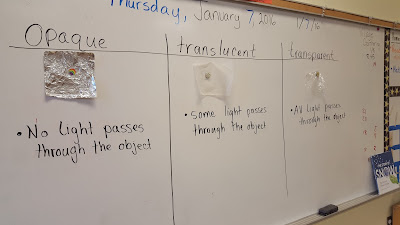 Thursday, January 7, 2016 1/7/16
Opaque
• No light passes
through the object
translucent
• some light passes
through the object
transparent
• All light passes
through the object
SNOW